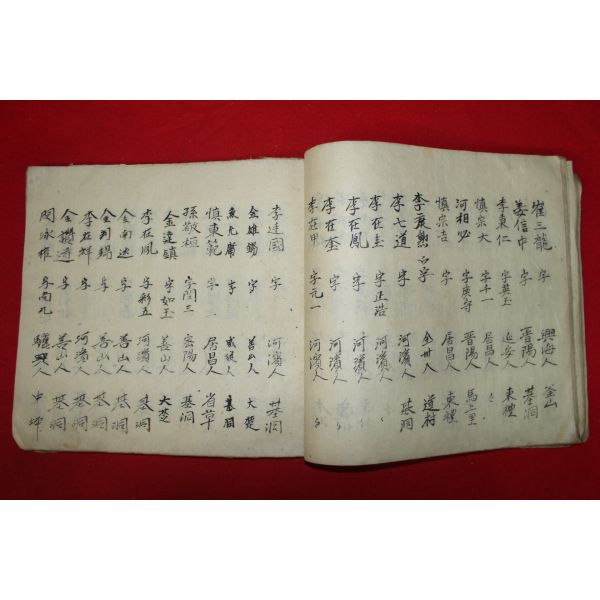 崔三龍 字 興海人 釜山
姜信中 字英玉 晋陽人 基洞
李東仁 字千一 延安人 東禮
愼宗大 字 居昌人
河相必 字 晋陽人 馬上里
愼宗吉 字 居昌人 東禮
李 字 全州人 道村
李七道 字 河濱人 基洞
李在圭 字正浩 河濱人
李在鳳 字 河濱人
李在奎 字 河濱人
李在甲 字元一 河濱人
李達國 字 河濱人 基洞
金雄錫 字 善山人 大楚
魚允 字 咸從人 基洞
愼東範 字 居昌人 省草
孫敬 字閏三 密陽人 基洞
金達鎭 字如玉 善山人 大楚
李在鳳 字彩五 河濱人 基洞
金 字 善山人 基洞
金 錫 字 善山人 基洞
李在 字 河濱人 基洞
金 字 善山人 基洞
閔泳權 字南九 驪興人 中坪